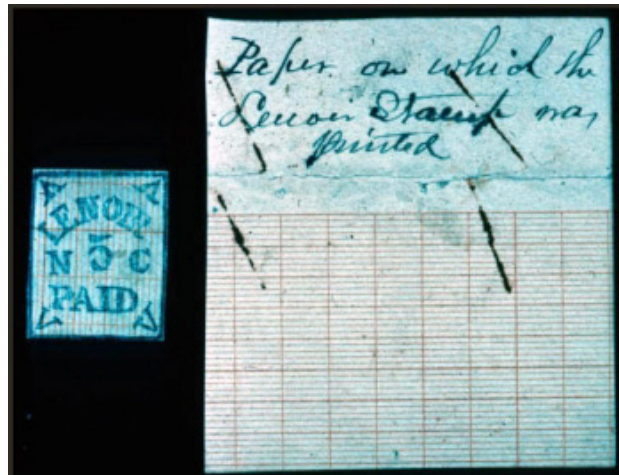 LENOIR
5
N C
PAID
Paper on which the
Lenoir Stamp was
printed